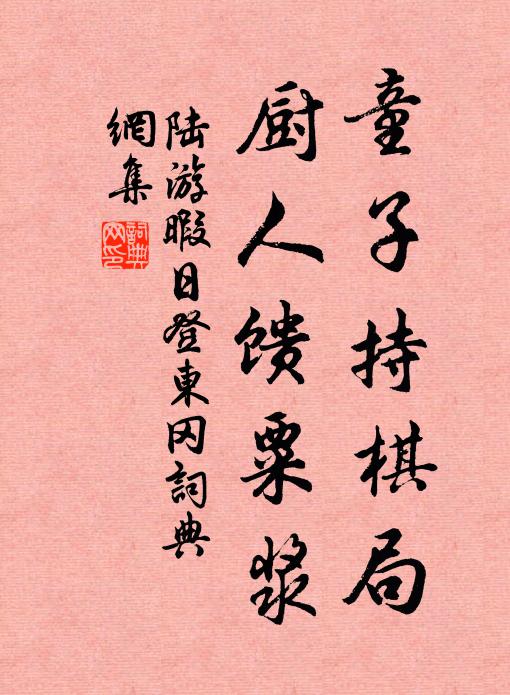 童子持棋局
厨人馈粟浆
陆游暇日登東冈詞典
網集
詞典
网印